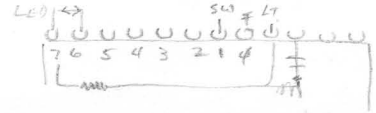 LED SW LT
7 6 5 4 3 2 1 4